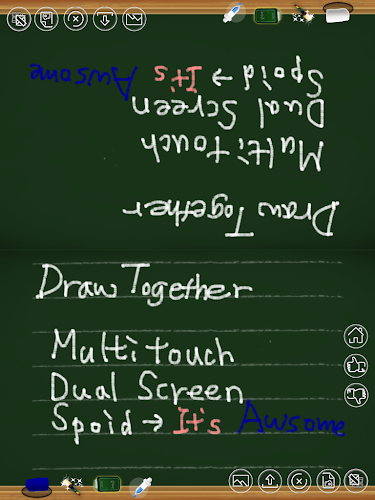 Draw Together
Multi touch
Dual Screen
Spoid → It's Awsome
Draw Together
Multi touch
Dual Screen
Spoid → It's Awsome